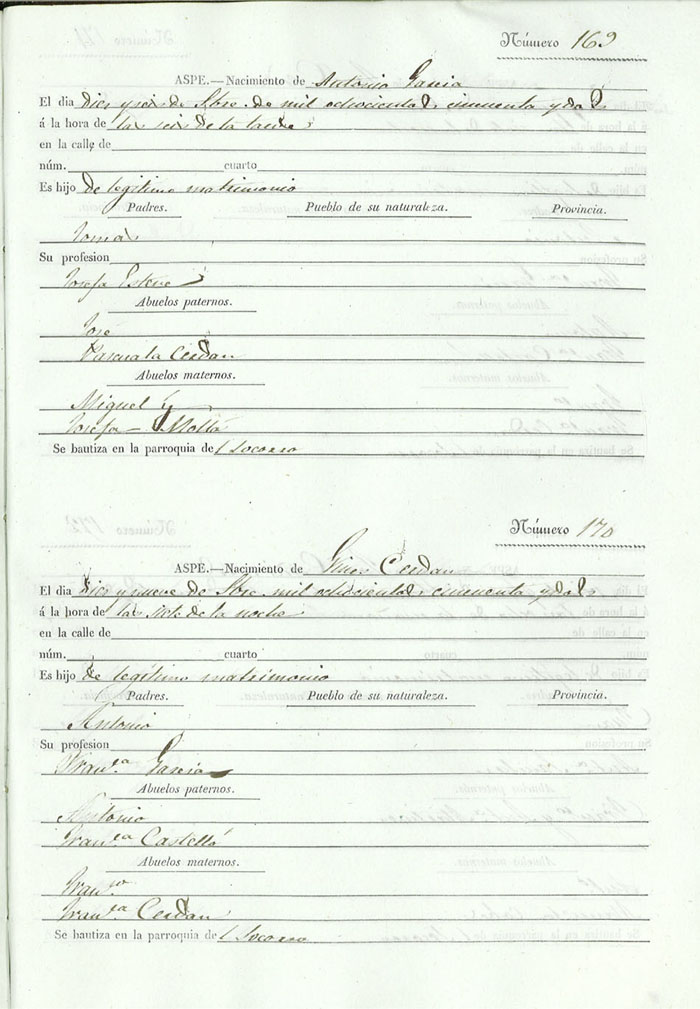 Número 169
ASPE.—Nacimiento de Antonio Garcia
El dia dies y seis de Sbre. de mil ochocientos cincuenta y dos
á la hora de las seis de la tarde
en la calle de
núm. cuarto
Es hijo de legitimo matrimonio
Padres. Pueblo de su naturaleza. Provincia.
Tomas
Su profesion
Josefa Esteve
Abuelos paternos.
José
Pascuala Cerdan
Abuelos maternos.
Miguel y
Josefa Molla
Se bautiza en la parroquia del Socorro
Número 170
ASPE.—Nacimiento de Gines Cerdan
El dia dies y nueve de Sbre. mil ochocientos cincuenta y dos
á la hora de las siete de la noche
en la calle de
núm. cuarto
Es hijo de legitimo matrimonio
Padres. Pueblo de su naturaleza. Provincia.
Antonio
Su profesion
Franca Garcia
Abuelos paternos.
Antonio
Franca Castelló
Abuelos maternos.
Franco
Franca Cerdan
Se bautiza en la parroquia del Socorro